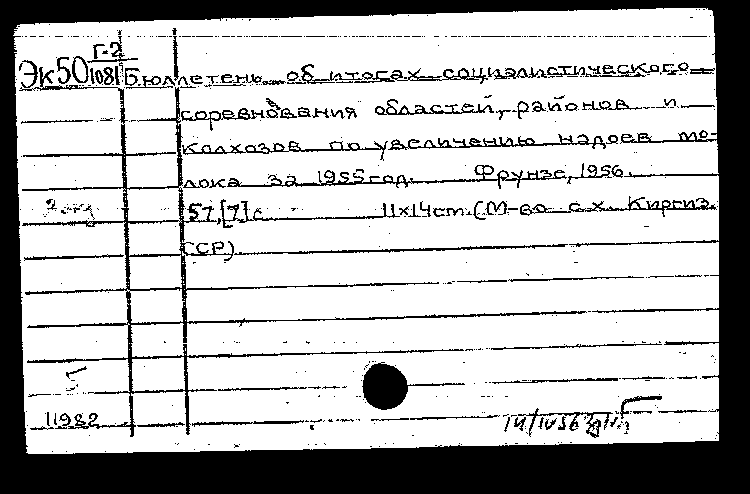 Г-2
Эк50 1081 Бюллетень об итогах социалистического
соревнования областей, районов и
колхозов по увеличению надоев мо-
лока за 1955 год. Фрунзе, 1956.
57,[7]с 11х14ст. (М-во с.х. Киргиз.
ССР)
5
11982
14/IV56